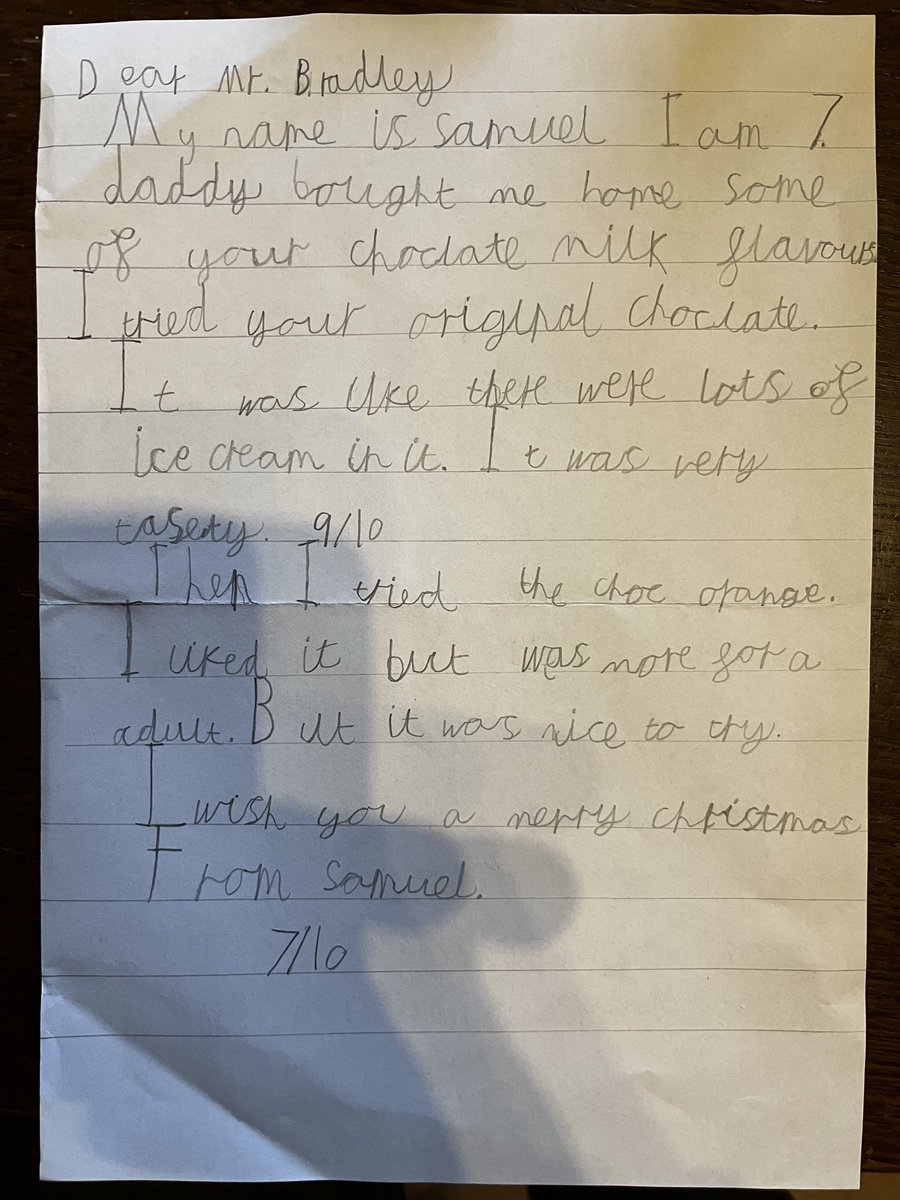 Dear Mr. Bradley
My name is samuel I am 7.
daddy bought me home some
of your choclate milk flavours
I tried your original choclate.
It was like there were lots of
ice cream in it. It was very
tasety. 9/10
Then I tried the choc orange.
I liked it but was more for a
adult. But it was nice to try.
I wish you a merry christmas
From samuel.
7/10